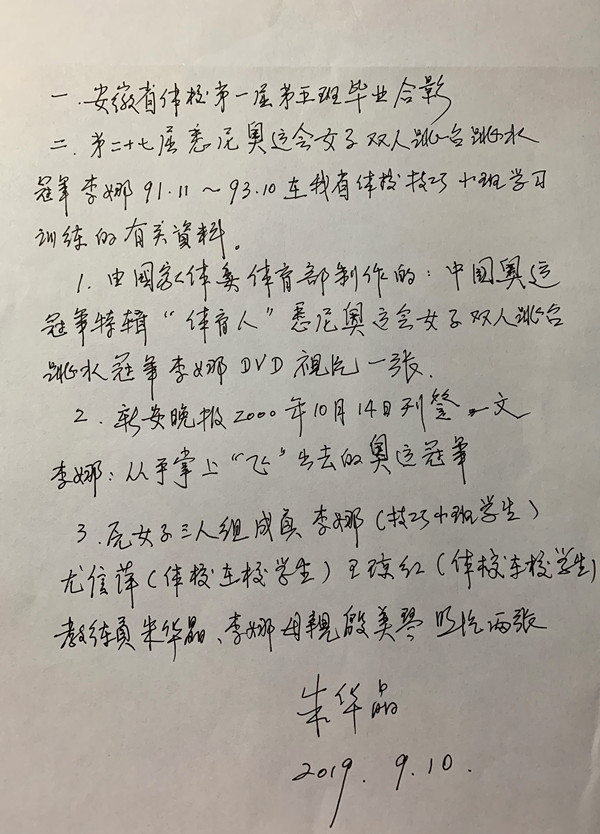 一.安徽省体校第一届第五班毕业合影
二.第二十七届悉尼奥运会女子双人跳台跳水
冠军李娜91.11～93.10在我省体校技巧小班学习
训练的有关資料。
1.由国家体委体育部制作的:中国奥运
冠军特辑“体育人”悉尼奥运会女子双人跳台
跳水冠军李娜DVD视片一张.
2.新安晚报2000年10月14日刊登一文
李娜:从手掌上“飞”出去的奥运冠军
3.原女子三人组成員李娜(技巧小班学生)
尤信萍(体校在校学生)王琼红(体校在校学生)
教练员朱华晶、李娜母親殷美琴照片两张
朱华晶
2019.9.10.